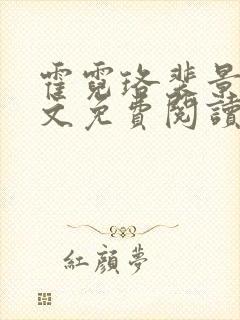 霍霓珞裴景
文免費閱讀
紅顏夢